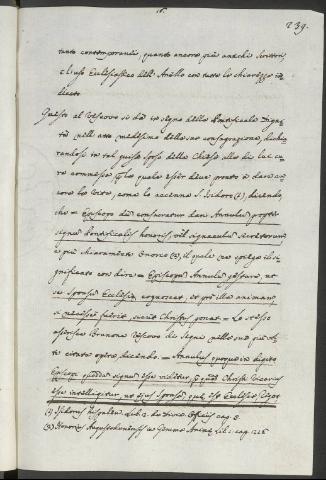 16.
239.
tanto contemporanei, quanto ancora più antichi Scrittori,
l'uso Ecclesiastico dell'Anello con tutta la chiarezza
Questo al Vescovo si dà in segno della Pontificale Digni-
tà nell'atto medesimo della sua consagrazione, dichia-
randosi in tal guisa sposo della Chiesa alla di lui cu-
ra commessa, per la quale esser deve pronto a dare an-
cora la vita, come lo accenna S. Isidoro (1), dicendo,
che = Episcopo dum consecratur datur Annulus propter
signum Pontificalis honoris, vel signaculum secretorum,
e più chiaramente Onorio (2), il quale ne spiega il si-
gnificato con dire = Episcopus Annulum gestare, ut
se sponsum Ecclesiæ cognoscat, et pro illa animam,
si necesse fuerit, sicut Christus ponat = Lo stesso
asserisce Brunone Vescovo di Segna nella sua già det-
ta citata opera dicendo = Annulus quoque in digito
Episcopi quoddam signum esse videtur, per quod Christi Vicarius
esse intelligitur, ut ejus sponsus, quæ est Ecclesia
(1) Isidorus Hispalen. Lib. 2. de Divin. Officiis cap. 5.
(2) Honorius Augustodunensis in Gemma Animæ Lib. 1. cap. 216